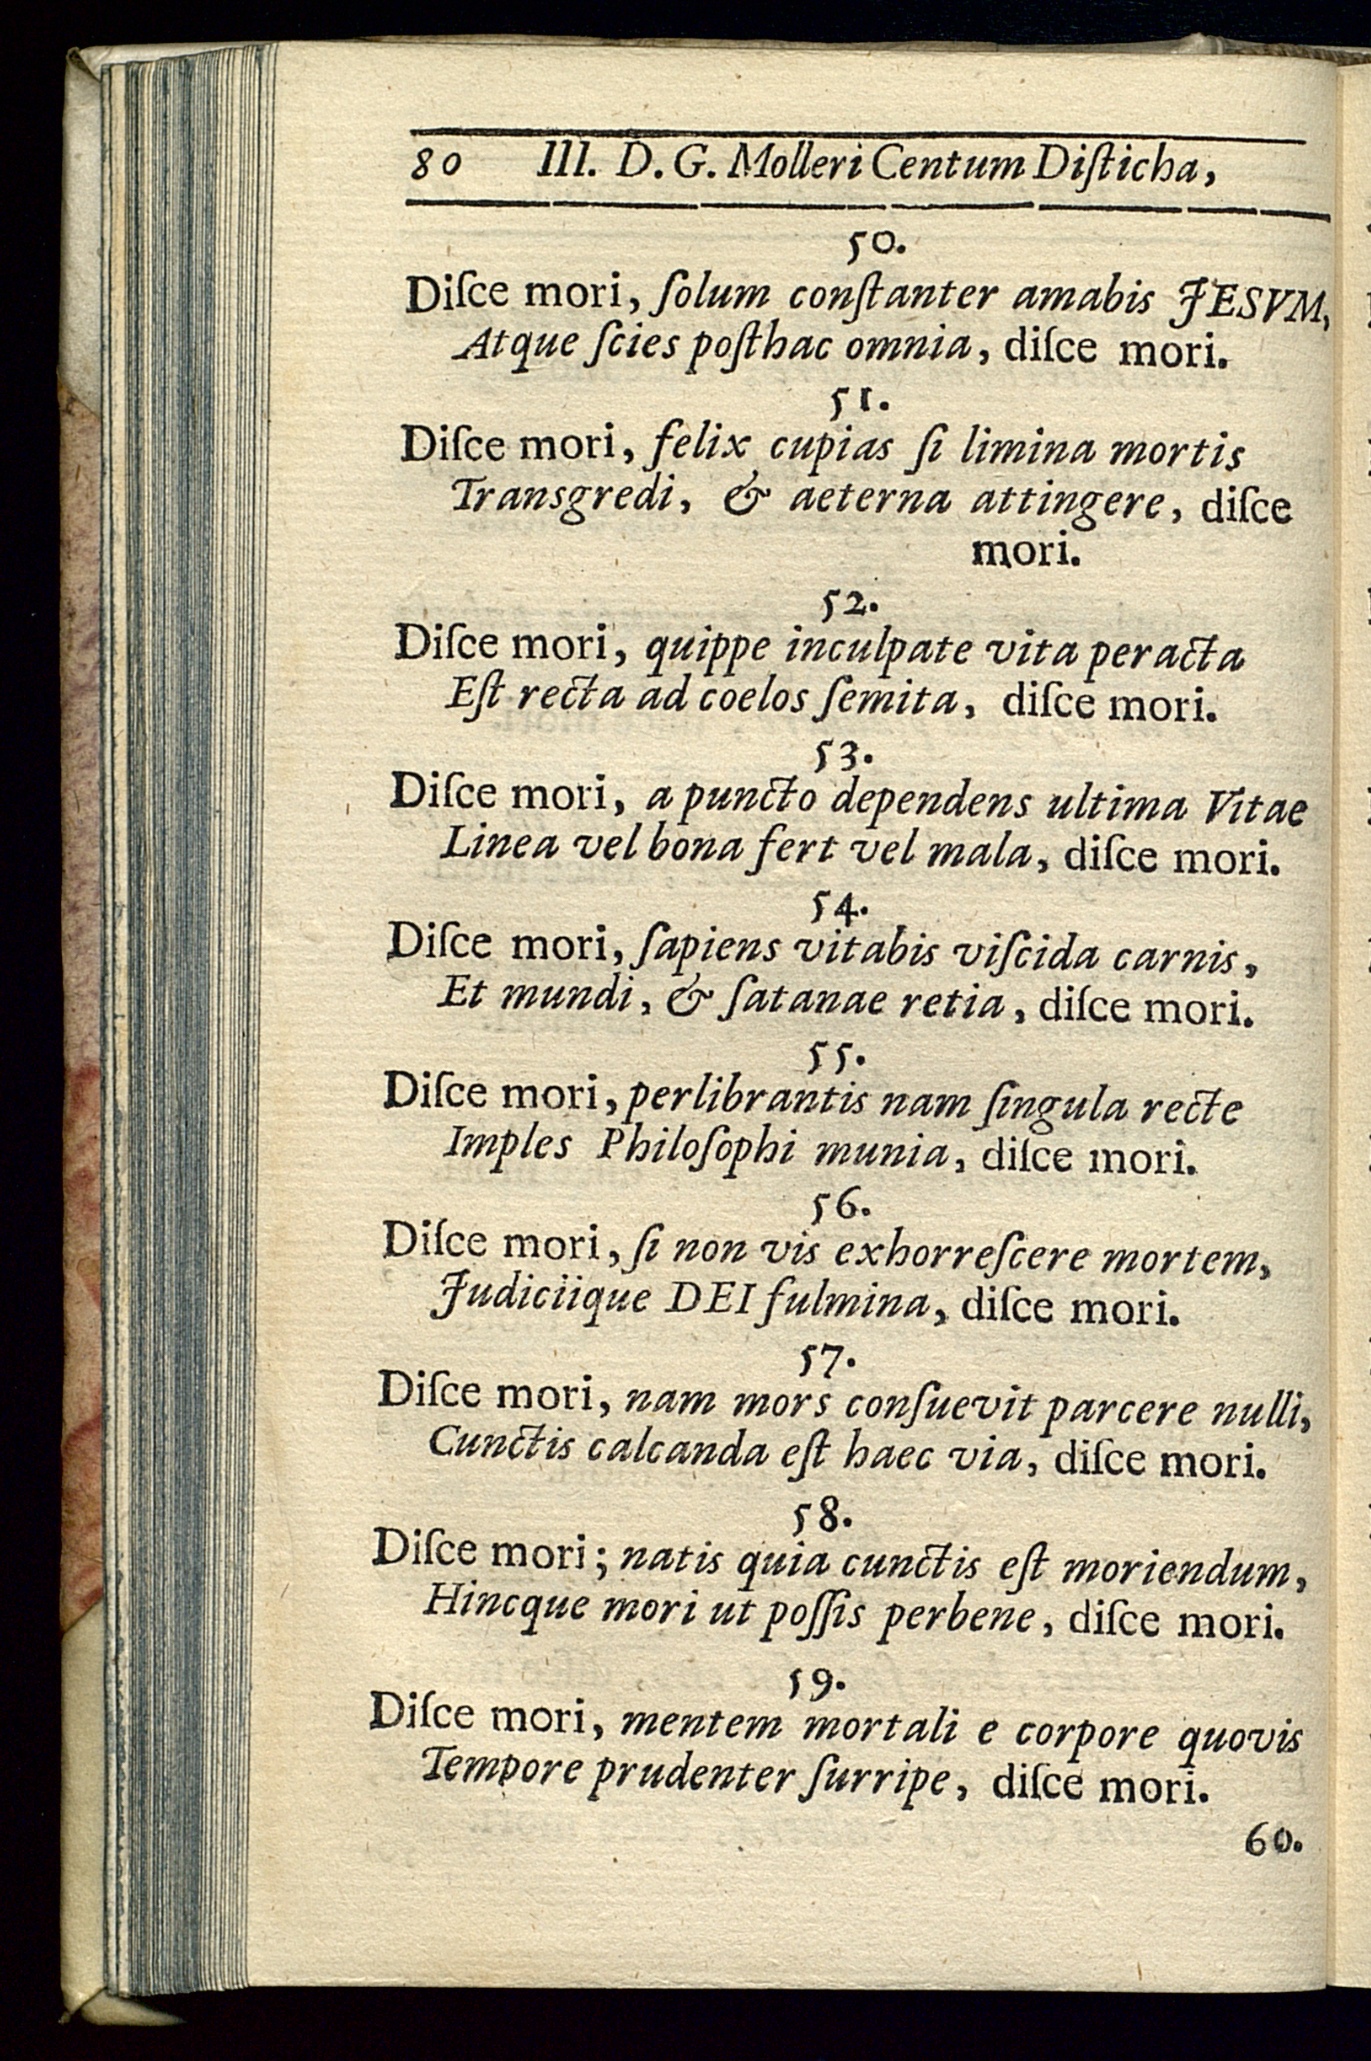 80 III. D. G. Molleri Centum Diſticha,
50.
Diſce mori, ſolum conſtanter amabis JESVM,
Atque ſcies poſthac omnia, diſce mori.
51.
Diſce mori, felix cupias ſi limina mortis
Transgredi, & aeterna attingere, diſce
mori.
52.
Diſce mori, quippe inculpate vita peracta
Eſt recta ad coelos ſemita, diſce mori.
53.
Diſce mori, a puncto dependens ultima Vitae
Linea vel bona fert vel mala, diſce mori.
54.
Diſce mori, ſapiens vitabis viſcida carnis,
Et mundi, & ſatanae retia, diſce mori.
55.
Diſce mori, perlibrantis nam ſingula recte
Imples Philoſophi munia, diſce mori.
56.
Diſce mori, ſi non vis exhorreſcere mortem,
Judiciique DEI fulmina, diſce mori.
57.
Diſce mori, nam mors conſuevit parcere nulli,
Cunctis calcanda eſt haec via, diſce mori.
58.
Diſce mori; natis quia cunctis eſt moriendum,
Hincque mori ut poſſis perbene, diſce mori.
59.
Diſce mori, mentem mortali e corpore quovis
Tempore prudenter ſurripe, diſce mori.
60.